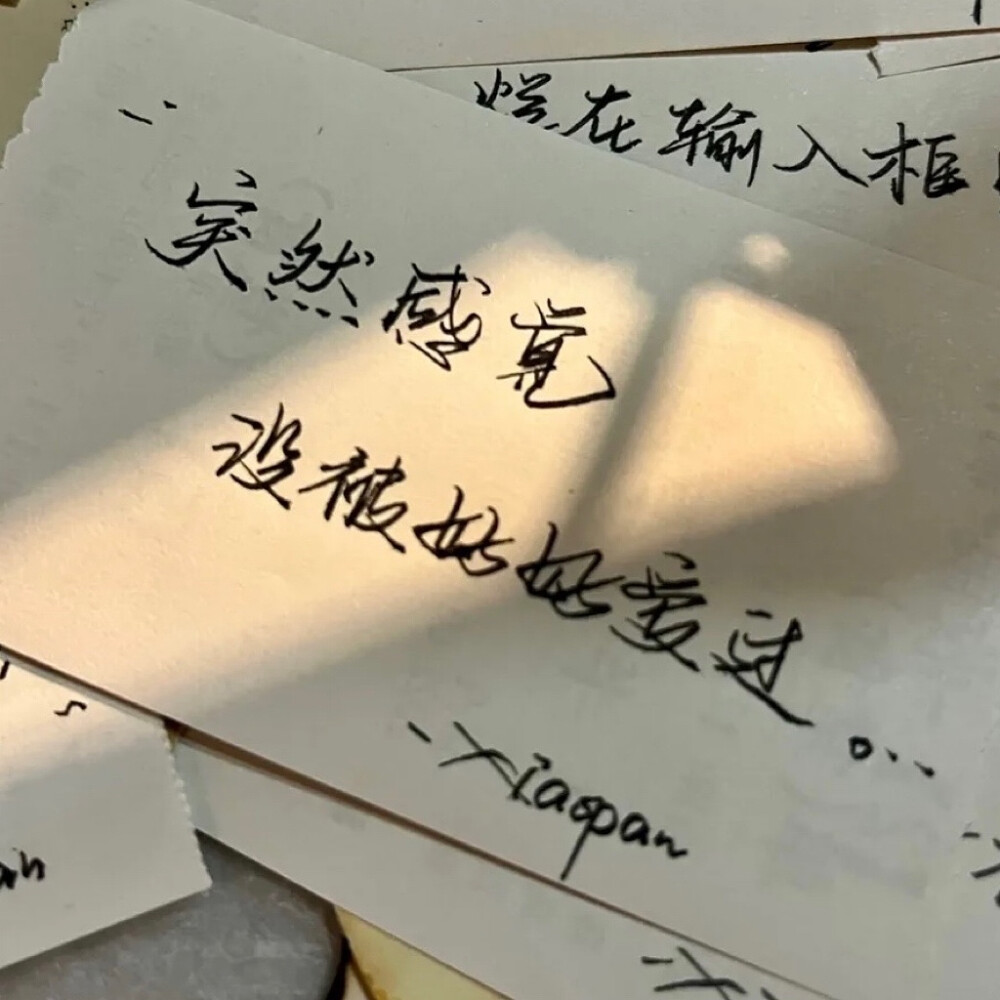 烂在输入框
突然感觉
没被好好爱过。..
-Xiaopan